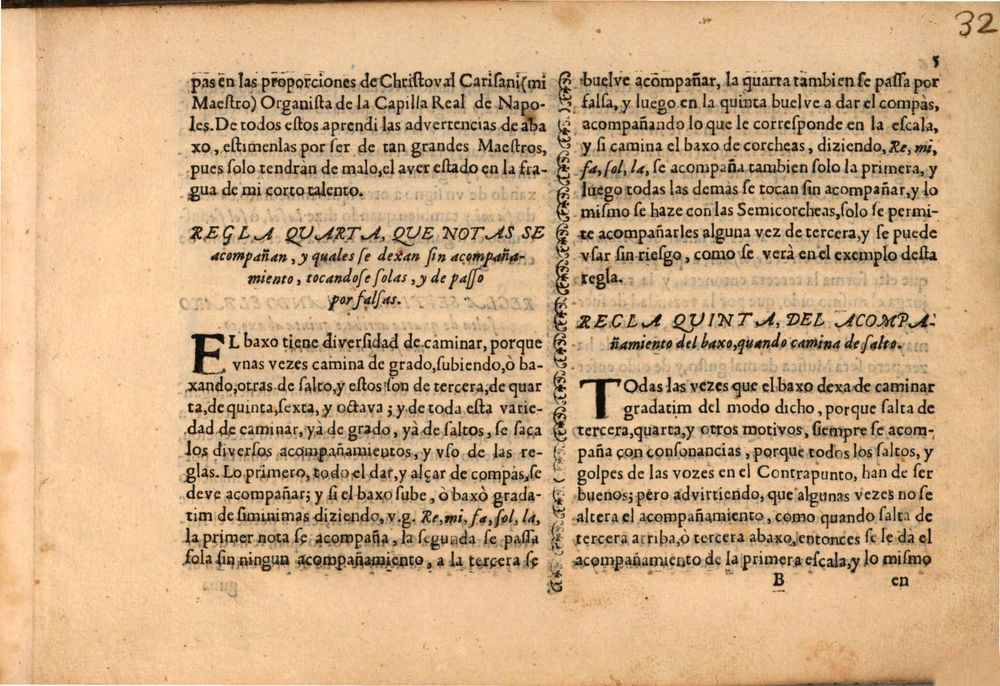 32
5
pas en las proporciones de Christoval Carisani(mi
Maestro) Organista de la Capilla Real de Napo-
les. De todos estos aprendi las advertencias de aba
xo, estimenlas por ser de tan grandes Maestros,
pues solo tendran de malo, el aver estado en la fra-
gua de mi corto talento.
REGLA QUARTA, QUE NOTAS SE
acompañan, y quales se dexan sin acompaña-
miento, tocandose solas, y de passo
por falsas.
EL baxo tiene diversidad de caminar, porque
vnas vezes camina de grado, subiendo, ò ba-
xando, otras de salto, y estos son de tercera, de quar
ta, de quinta, sexta, y octava; y de toda esta varie-
dad de caminar, yà de grado, yà de saltos, se saca
los diversos acompañamientos, y vso de las re-
glas. Lo primero, todo el dar, y alçar de compas, se
deve acompañar; y si el baxo sube, ò baxò grada-
tim de siminimas diziendo, v.g. Re, mi, fa, sol, la,
la primer nota se acompaña, la segunda se passa
sola sin ningun acompañamiento, a la tercera se
buelve acõpañar, la quarta tambien se passa por
falsa, y luego en la quinta buelve a dar el compas,
acompañando lo que le corresponde en la escala,
y si camina el baxo de corcheas, diziendo, Re, mi,
fa, sol, la, se acompaña tambien solo la primera, y
luego todas las demàs se tocan sin acompañar, y lo
mismo se haze con las Semicorcheas, solo se permi-
te acompañarles alguna vez de tercera, y se puede
vsar sin riesgo, como se verà en el exemplo desta
regla.
REGLA QUINTA, DEL ACOMPA-
ñamiento del baxo, quando camina de salto.
TOdas las vezes que el baxo dexa de caminar
gradatim del modo dicho, porque salta de
tercera, quarta, y otros motivos, siempre se acom-
paña con consonancias, porque todos los saltos, y
golpes de las vozes en el Contrapunto, han de ser
buenos; pero advirtiendo, que algunas vezes no se
altera el acompañamiento, como quando salta de
tercera arriba, ò tercera abaxo, entonces se le da el
acompañamiento de la primera escala, y lo mismo
B en